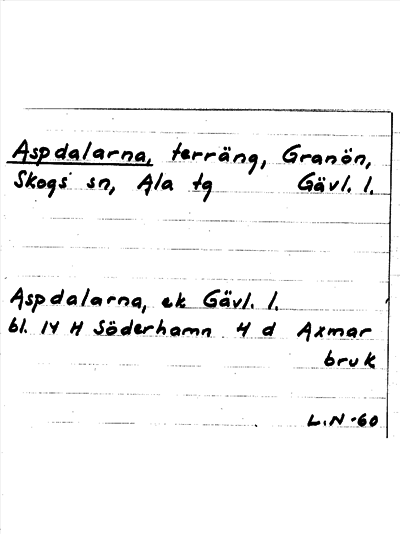 Aspdalarna, terräng, Granön,
Skogs sn, Ala tg Gävl. l.
Aspdalarna, ek Gävl. l.
bl. 14 H Söderhamn 4 d Axmar
bruk
L.N -60